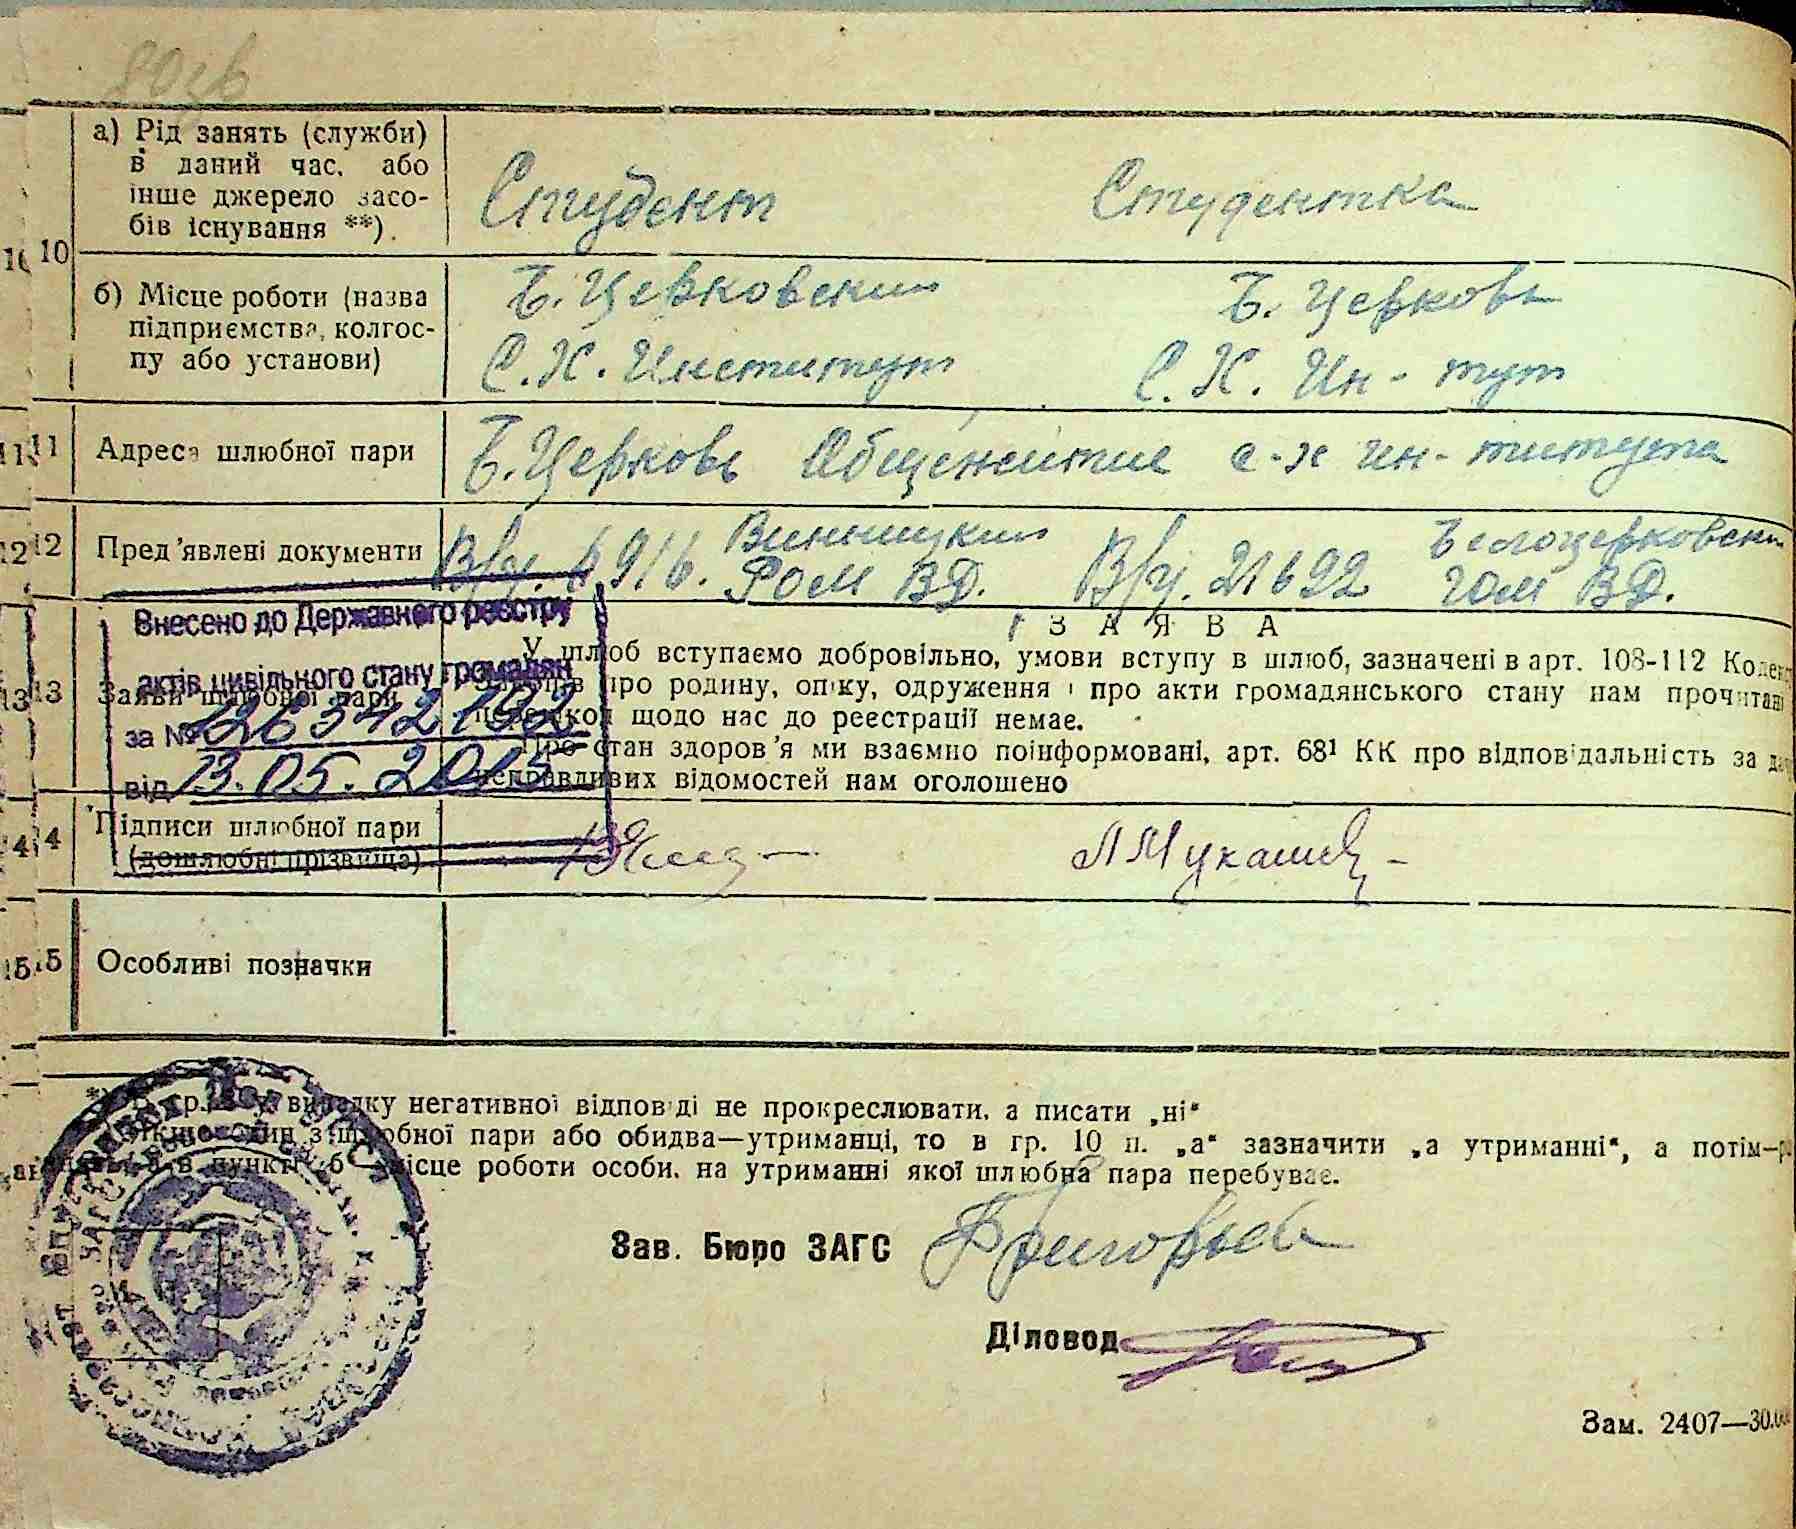 803б
а) Рід занять (служби)
в даний час, або
інше джерело засо-
бів існування **).
Студент Студентка
10 10
б) Місце роботи (назва
підприємства, колгос-
пу або установи)
Б. Церковский Б. Церковь
С. Х. Институт С. Х. Ин-тут
11 11 Адреса шлюбної пари
Б. Церковь Общежитие с-х ин-титута
12 12 Пред'явлені документи
Винницкий Белоцерковский
РОМ ВД. В/у. 21692 ГОМ ВД.
Внесено до Державного реєстру
актів цивільного стану громадян
за № 126342192
від 13.05.2015
13 13 Заяви шлюбної пари
З А Я В А
У шлюб вступаємо добровільно, умови вступу в шлюб, зазначені в арт. 108-112 Кодек
про родину, опіку, одруження і про акти громадянського стану нам прочитані
щодо нас до реєстрації немає.
Про стан здоров'я ми взаємно поінформовані, арт. 68¹ КК про відповідальність за
неправдивих відомостей нам оголошено
14 4 Підписи шлюбної пари
(дошлюбні прізвища)
15 15 Особливі позначки
у випадку негативної відповіді не прокреслювати, а писати „ні“
Якщо один з шлюбної пари або обидва—утриманці, то в гр. 10 п. „а“ зазначити „а утриманні“, а потім—
в пункті „б“ місце роботи особи, на утриманні якої шлюбна пара перебуває.
Зав. Бюро ЗАГС Григорьев
Діловод
Зам. 2407—30.00